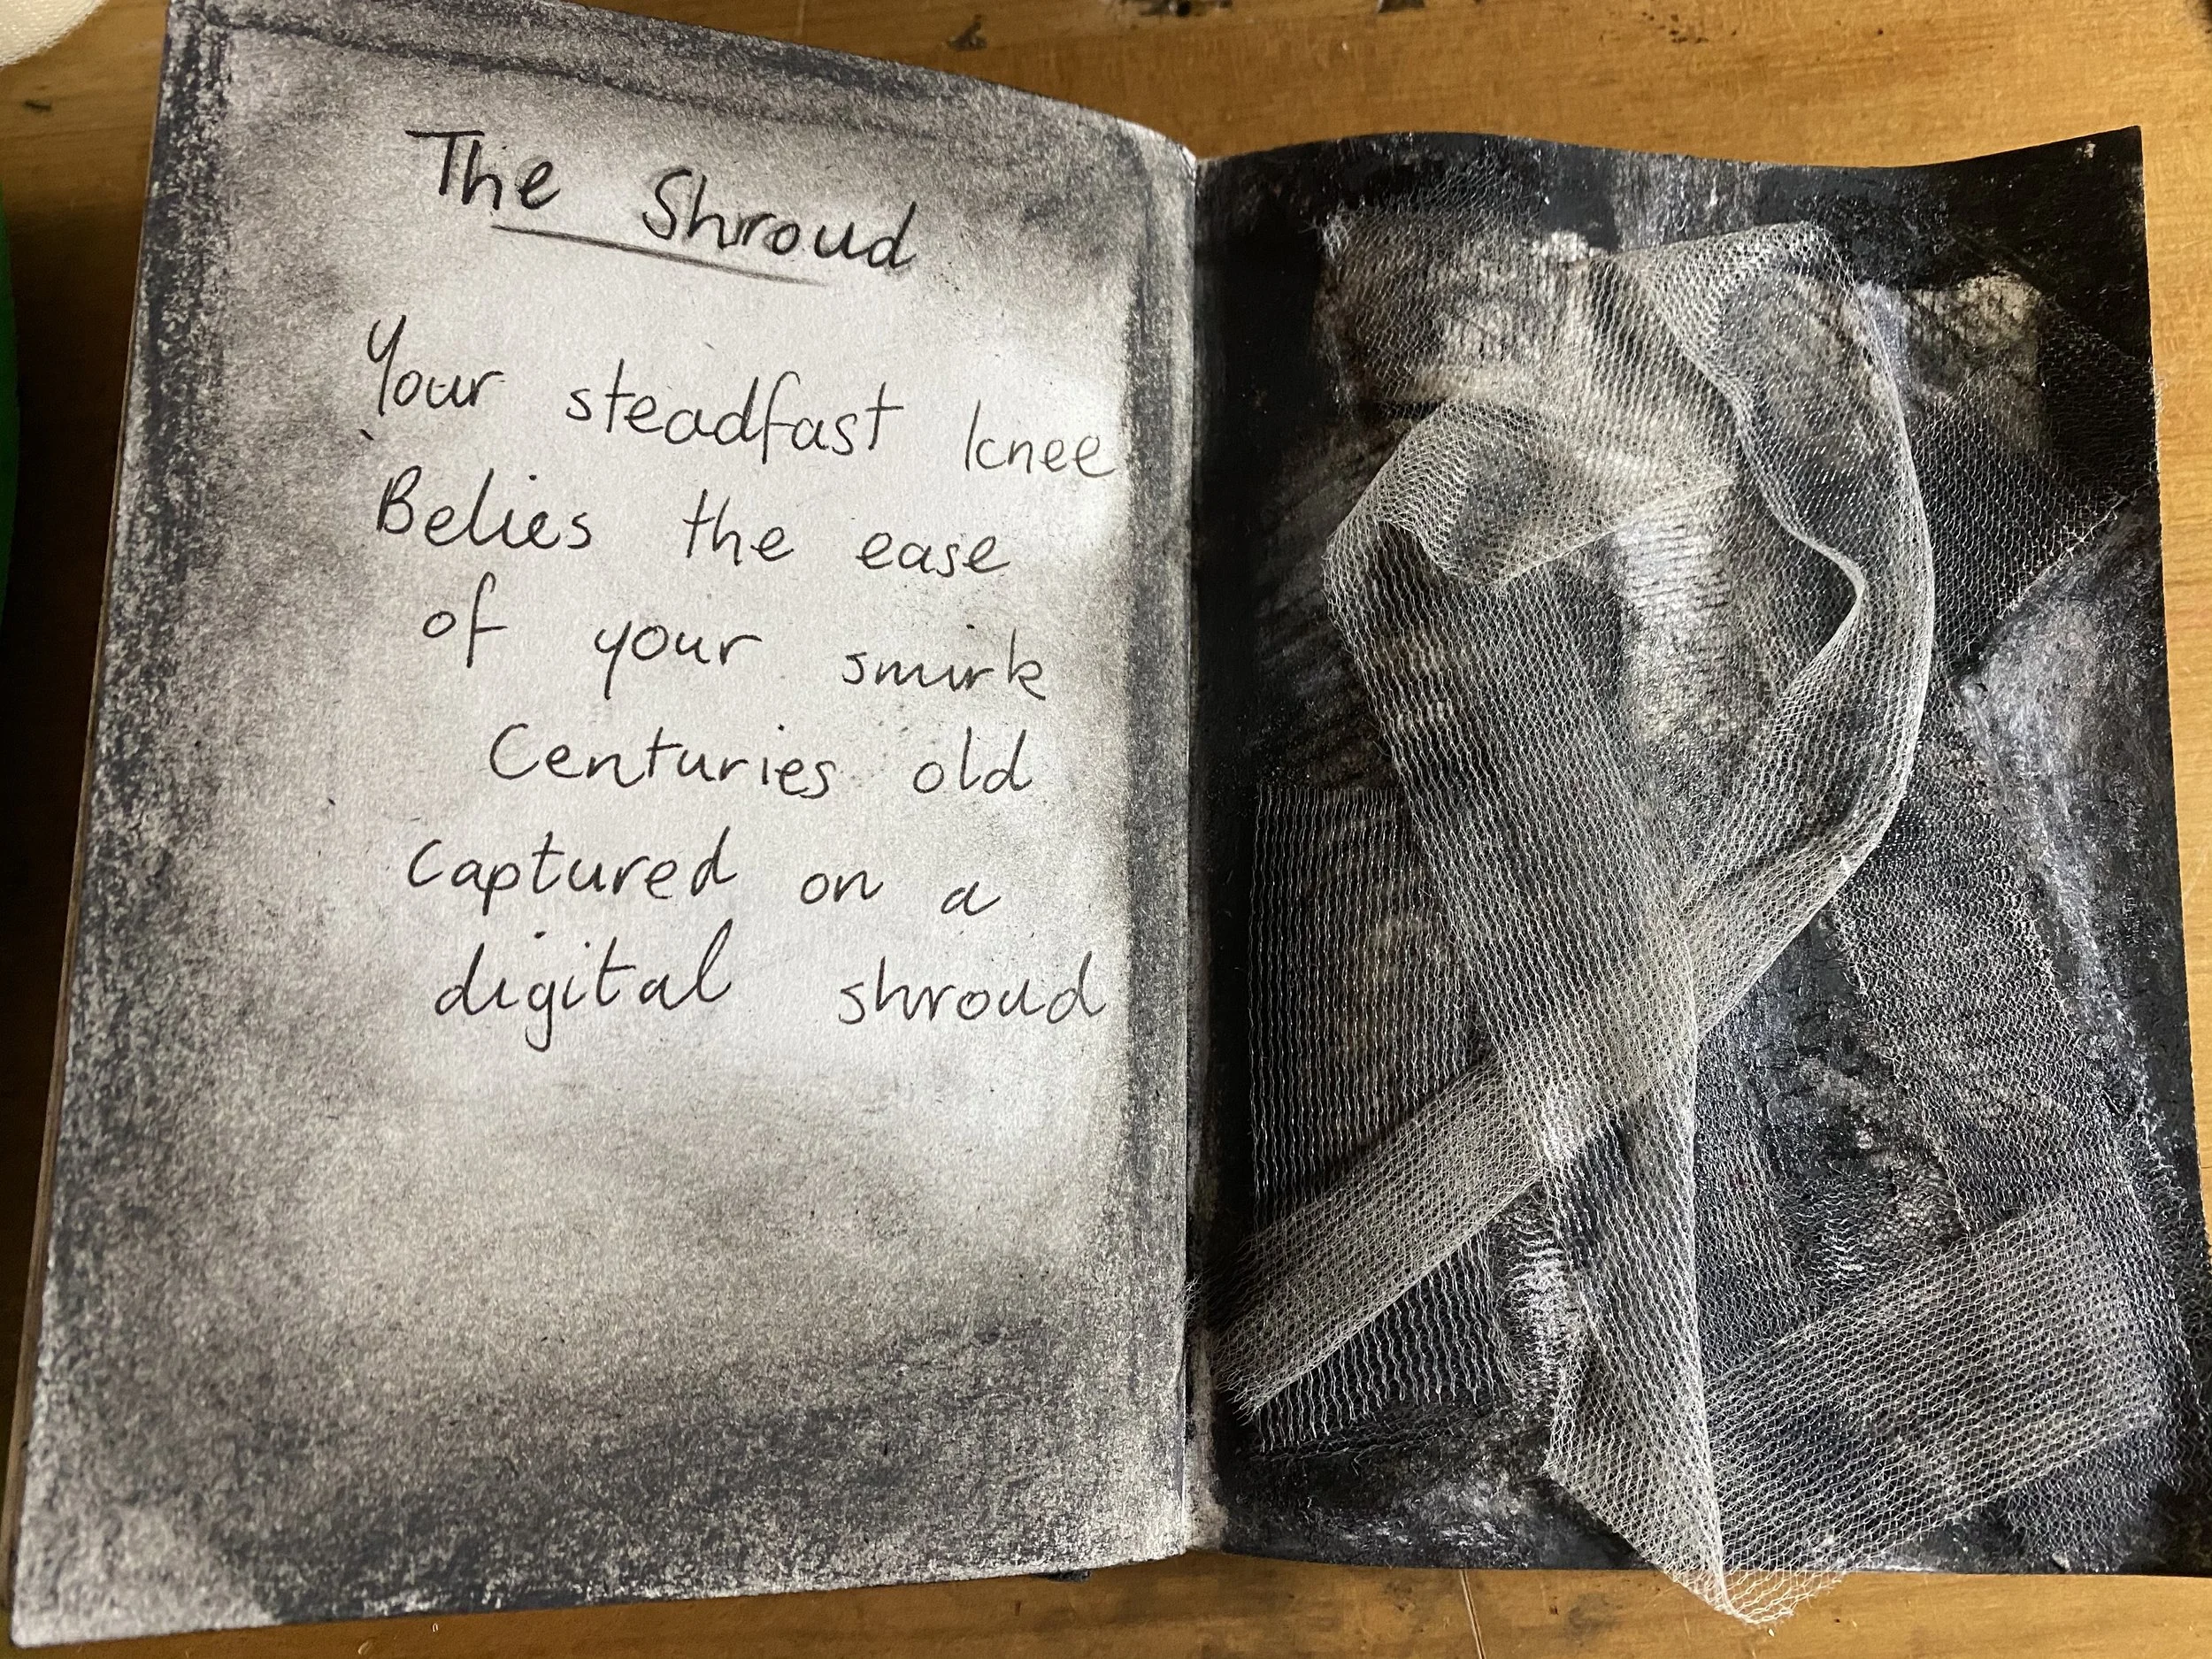 The Shroud
Your steadfast knee
Belies the ease
of your smirk
Centuries old
captured on a
digital shroud